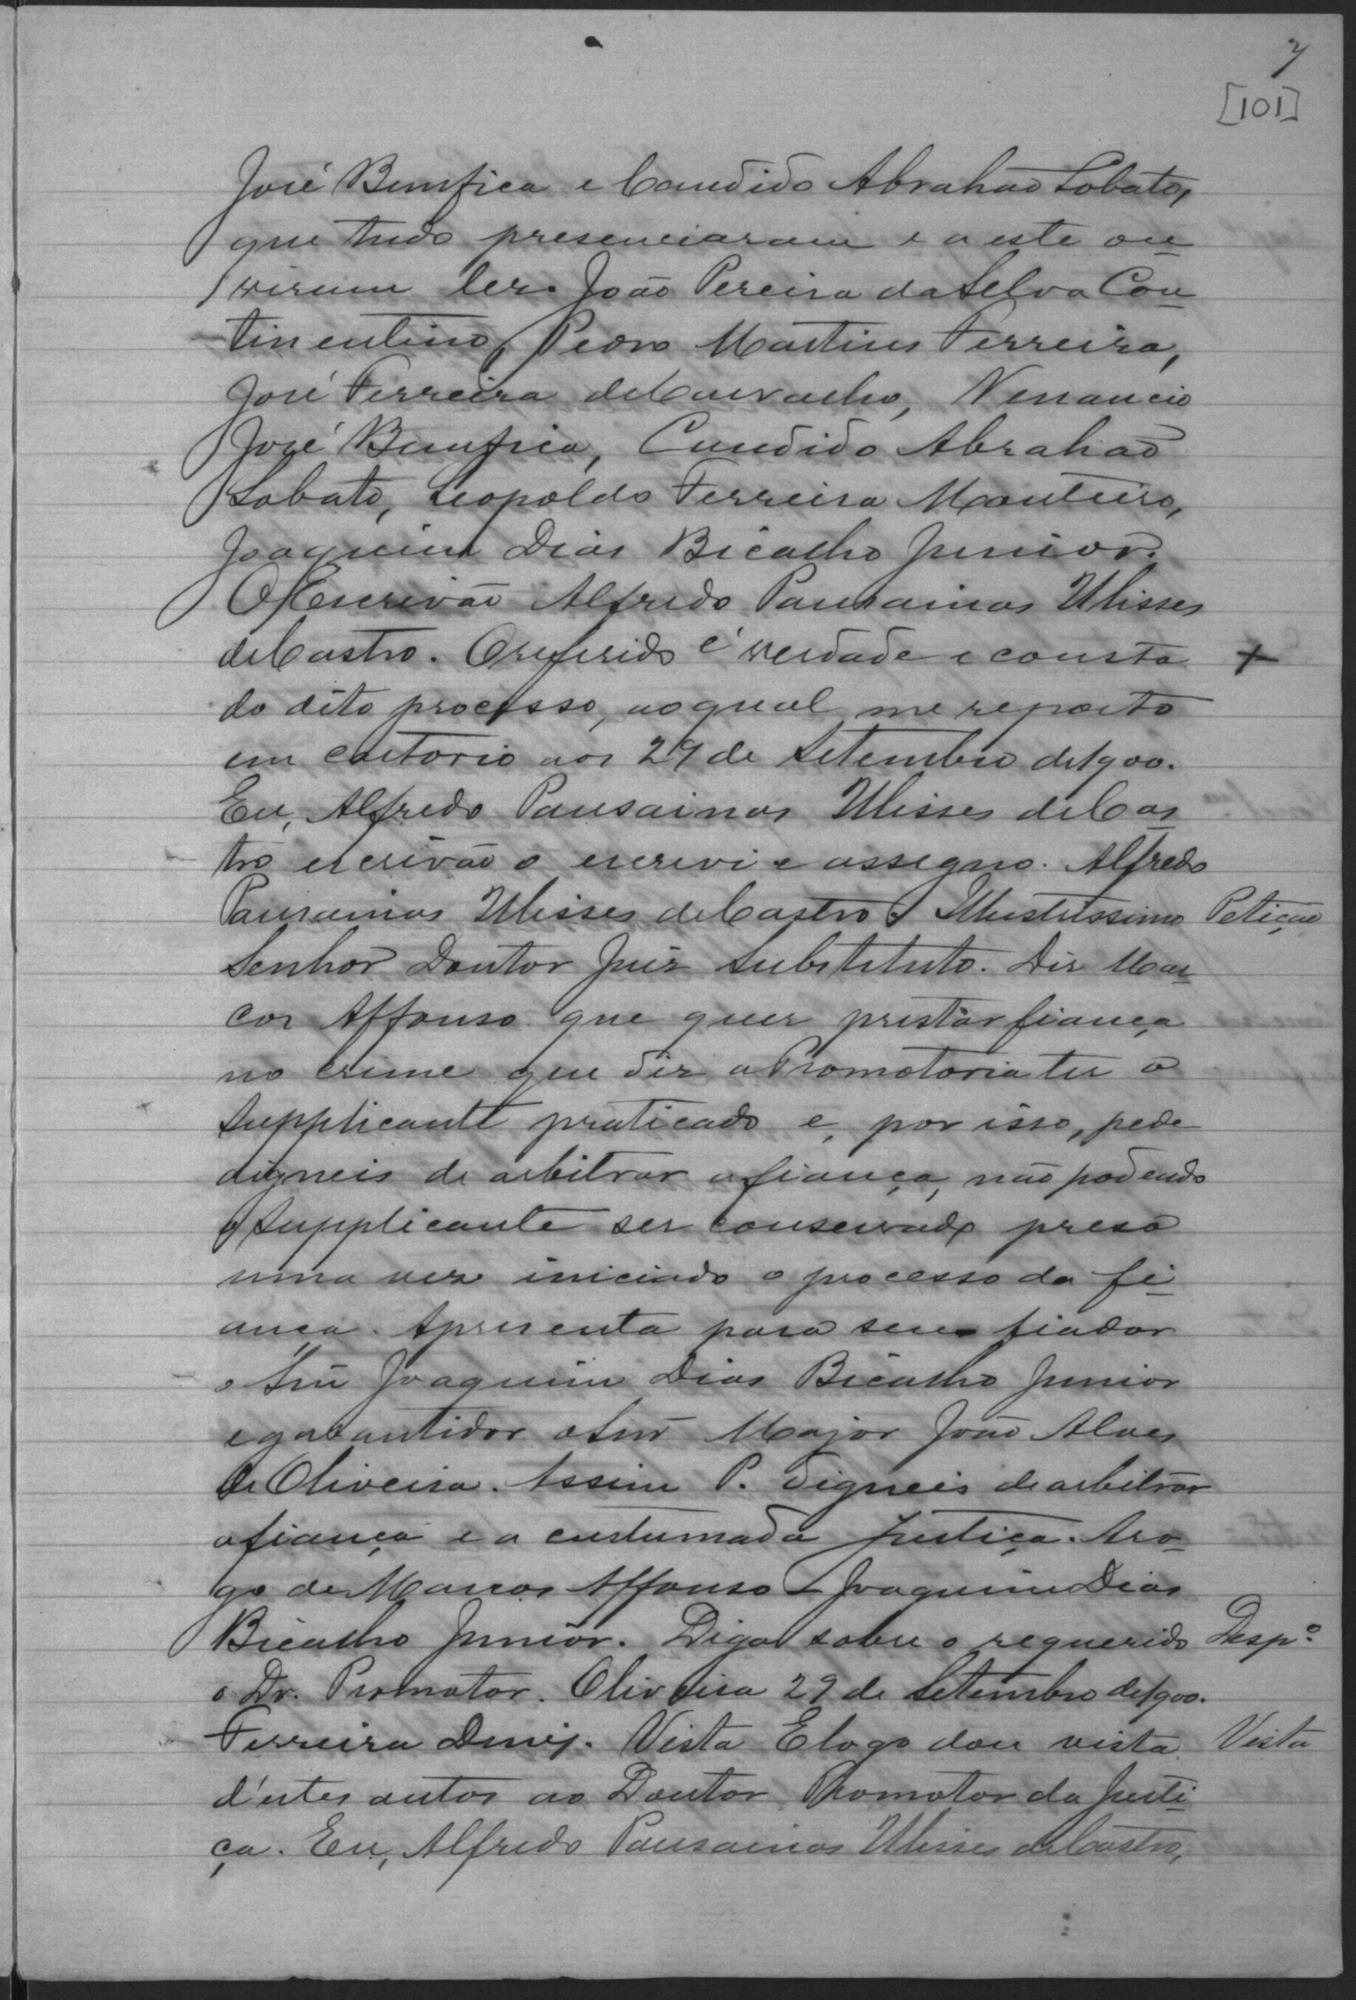 7
[101]
José Bumfica e Candido Abrahão Lobato,
que tudo presenciaram e a este ou
virum ler. João Pereira da Selva Con
tinentino, Pedro Martins Ferreira,
José Ferreira de Carvalho, Venancio
José Bumfica, Candido Abrahão
Lobato, Leopoldo Ferreira Monteiro,
Joaquim Dias Bicalho Junior.
O Escrivão Alfredo Pausainas Ulisses
de Castro. O referido é verdade e consta +
do dito processo, ao qual me reporto
em cartorio aos 29 de Setembro de 1900.
Eu, Alfredo Pausainas Ulisses de Cas
tro escrivão o escrevi e assegno. Alfredo
Pausainas Ulisses de Castro. Illustrissimo Petição
Senhor Doutor Juiz Substituto. Diz Mar
cos Affonso que quer prestar fiança
no crime que diz a Promotoria ter o
Supplicante praticado e, por isso, pede
digneis de arbitrar a fiança, não podendo
o Supplicante ser conservado preso
uma vez iniciado o processo da fi
ança. Apresenta para seu fiador
o Snr Joaquim Dias Bicalho Junior
e garantidor o Snr Major João Alves
de Oliveira. Assim P. digneis de arbitrar
a fiança e a custumada justiça. Aro
go de Marcos Affonso Joaquim Dias
Bicalho Junior. Diga sobre o requerido Despº
o Dr. Promotor. Oliveira 29 de Setembro de 1900.
Ferreira Diniz. Vista E logo dou vista Vista
d'estes autos ao Doutor Promotor da Justi
ça. Eu, Alfredo Pausainas Ulisses de Castro,